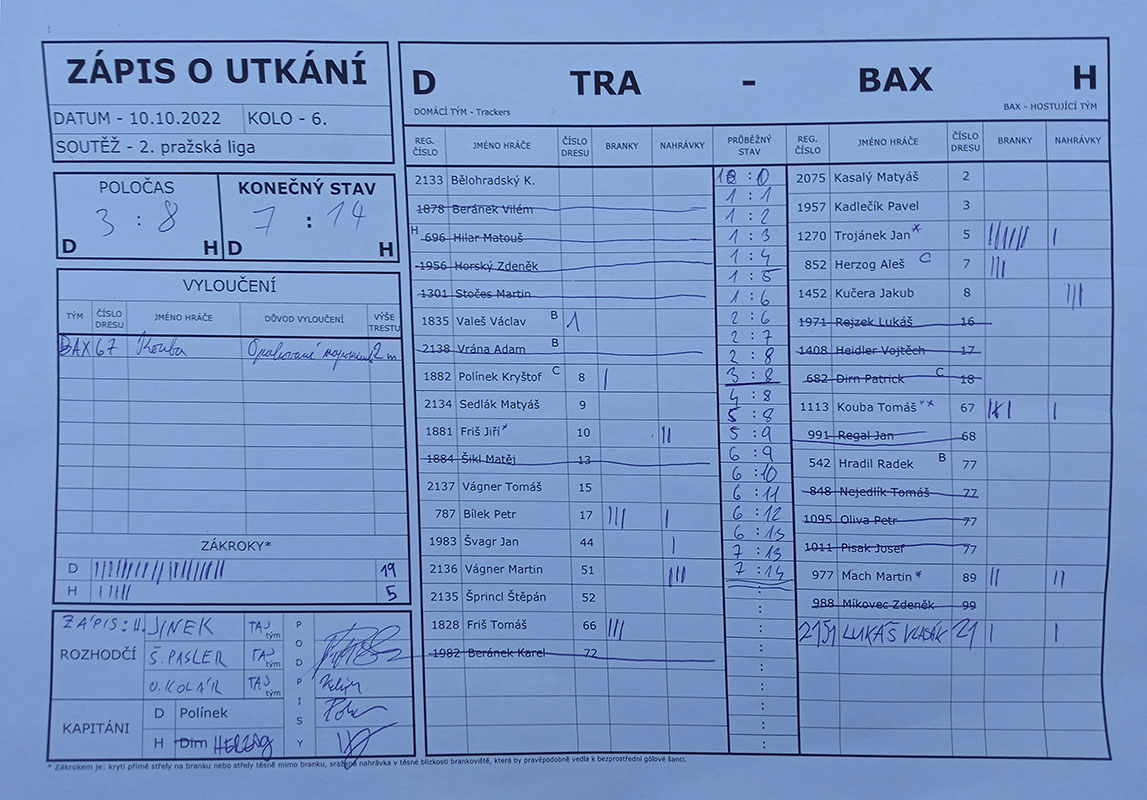 ZÁPIS O UTKÁNÍ
DATUM - 10.10.2022 KOLO - 6.
SOUTĚŽ - 2. pražská liga
POLOČAS KONEČNÝ STAV
3 : 8 7 : 14
D H D H
VYLOUČENÍ
TÝM ČÍSLO DRESU JMÉNO HRÁČE DŮVOD VYLOUČENÍ VÝŠE TRESTU
BAX 67 Kouba Opakované 2 m
ZÁKROKY*
D 19
H 5
ZÁPIS: H. JINEK TAJ tým
ROZHODČÍ Š. PASLER TAJ tým
O. KOLÁŘ TAJ tým
KAPITÁNI D Polínek
H Dirn HERZOG
PODPISY
D TRA - BAX H
DOMÁCÍ TÝM - Trackers BAX - HOSTUJÍCÍ TÝM
REG. ČÍSLO JMÉNO HRÁČE ČÍSLO DRESU BRANKY NAHRÁVKY PRŮBĚŽNÝ STAV REG. ČÍSLO JMÉNO HRÁČE ČÍSLO DRESU BRANKY NAHRÁVKY
2133 Bělohradský K.
1878 Beránek Vilém
H 696 Hilar Matouš
1956 Horský Zdeněk
1301 Stočes Martin
1835 Valeš Václav B
2138 Vrána Adam B
1882 Polínek Kryštof C 8
2134 Sedlák Matyáš 9
1881 Friš Jiří* 10
1884 Šikl Matěj 13
2137 Vágner Tomáš 15
787 Bílek Petr 17
1983 Švagr Jan 44
2136 Vágner Martin 51
2135 Šprincl Štěpán 52
1828 Friš Tomáš 66
1982 Beránek Karel 72
1 : 0
1 : 1
1 : 2
1 : 3
1 : 4
1 : 5
1 : 6
2 : 6
2 : 7
2 : 8
3 : 8
4 : 8
5 : 8
5 : 9
6 : 9
6 : 10
6 : 11
6 : 12
6 : 13
7 : 13
7 : 14
2075 Kasalý Matyáš 2
1957 Kadlečík Pavel 3
1270 Trojánek Jan* 5
852 Herzog Aleš C 7
1452 Kučera Jakub 8
1971 Rejzek Lukáš 16
1408 Heidler Vojtěch 17
682 Dirn Patrick C 18
1113 Kouba Tomáš ** 67
991 Regal Jan 68
542 Hradil Radek B 77
848 Nejedlík Tomáš 77
1095 Oliva Petr 77
1011 Pisak Josef 77
977 Mach Martin* 89
988 Mikovec Zdeněk 99
2151 LUKÁŠ VLASÁK 21
* Zákrokem je: krytí přímé střely na branku nebo střely těsně mimo branku, sražená nahrávka v těsné blízkosti brankoviště, která by pravěpodobně vedla k bezprostřední gólové šanci.